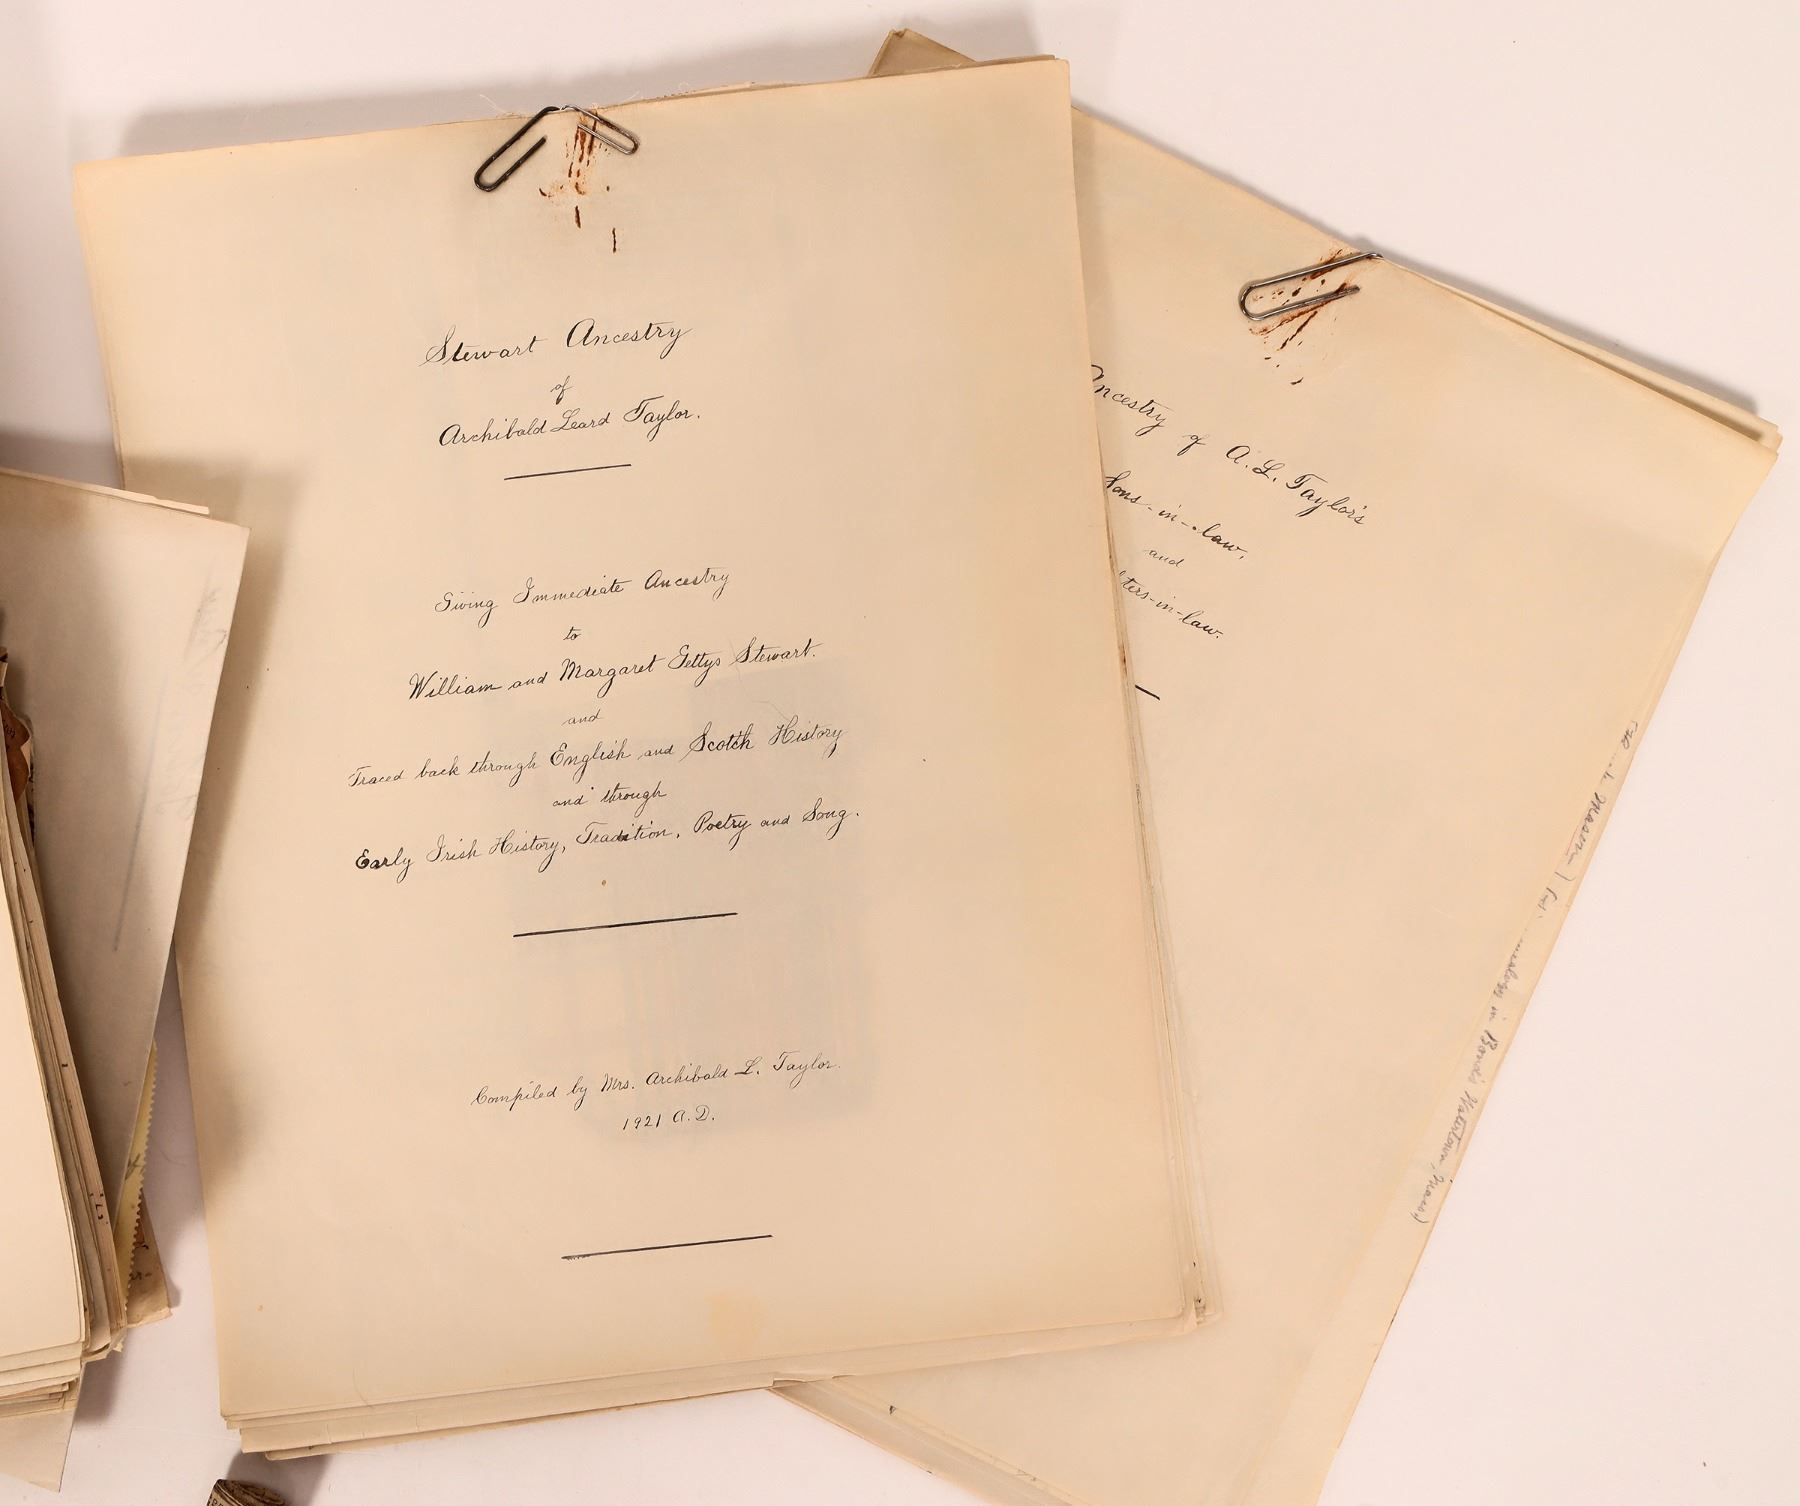 Stewart Ancestry
of
Archibald Leard Taylor.
Giving Immediate Ancestry
to
William and Margaret Gettys Stewart.
and
Traced back through English and Scotch History
and through
Early Irish History, Tradition, Poetry and Song.
Compiled by Mrs. Archibald L. Taylor.
1921 A.D.
Ancestry of A. L. Taylor's
Sons-in-law,
and
ters-in-law.
in Bond's Watertown, Mass.)